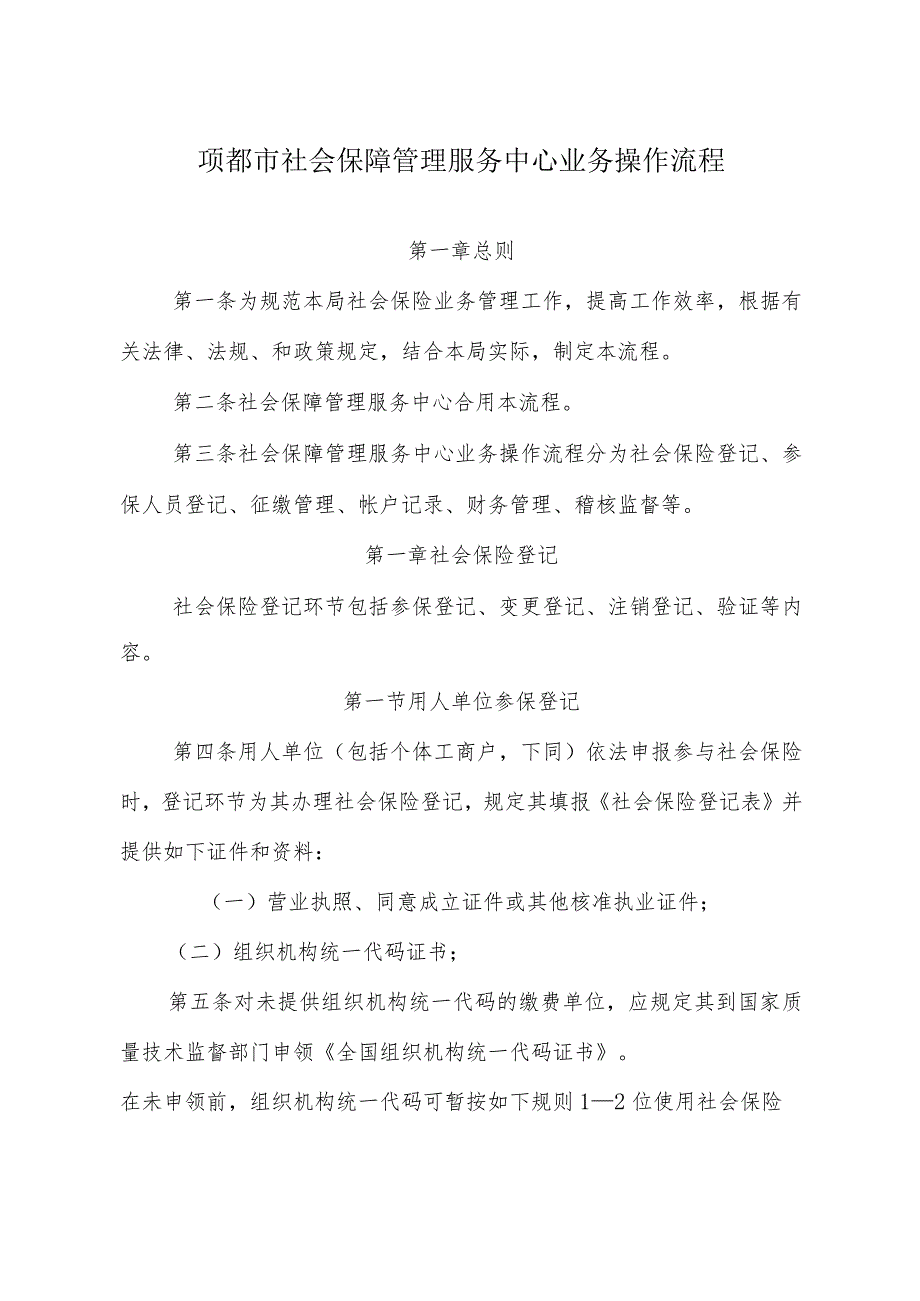 项都市社会保障管理服务中心业务操作流程
第一章总则
第一条为规范本局社会保险业务管理工作，提高工作效率，根据有
关法律、法规、和政策规定，结合本局实际，制定本流程。
第二条社会保障管理服务中心合用本流程。
第三条社会保障管理服务中心业务操作流程分为社会保险登记、参
保人员登记、征缴管理、帐户记录、财务管理、稽核监督等。
第一章社会保险登记
社会保险登记环节包括参保登记、变更登记、注销登记、验证等内
容。
第一节用人单位参保登记
第四条用人单位（包括个体工商户，下同）依法申报参与社会保险
时，登记环节为其办理社会保险登记，规定其填报《社会保险登记表》并
提供如下证件和资料：
（一）营业执照、同意成立证件或其他核准执业证件；
（二）组织机构统一代码证书；
第五条对未提供组织机构统一代码的缴费单位，应规定其到国家质
量技术监督部门申领《全国组织机构统一代码证书》。
在未申领前，组织机构统一代码可暂按如下规则1—2位使用社会保险